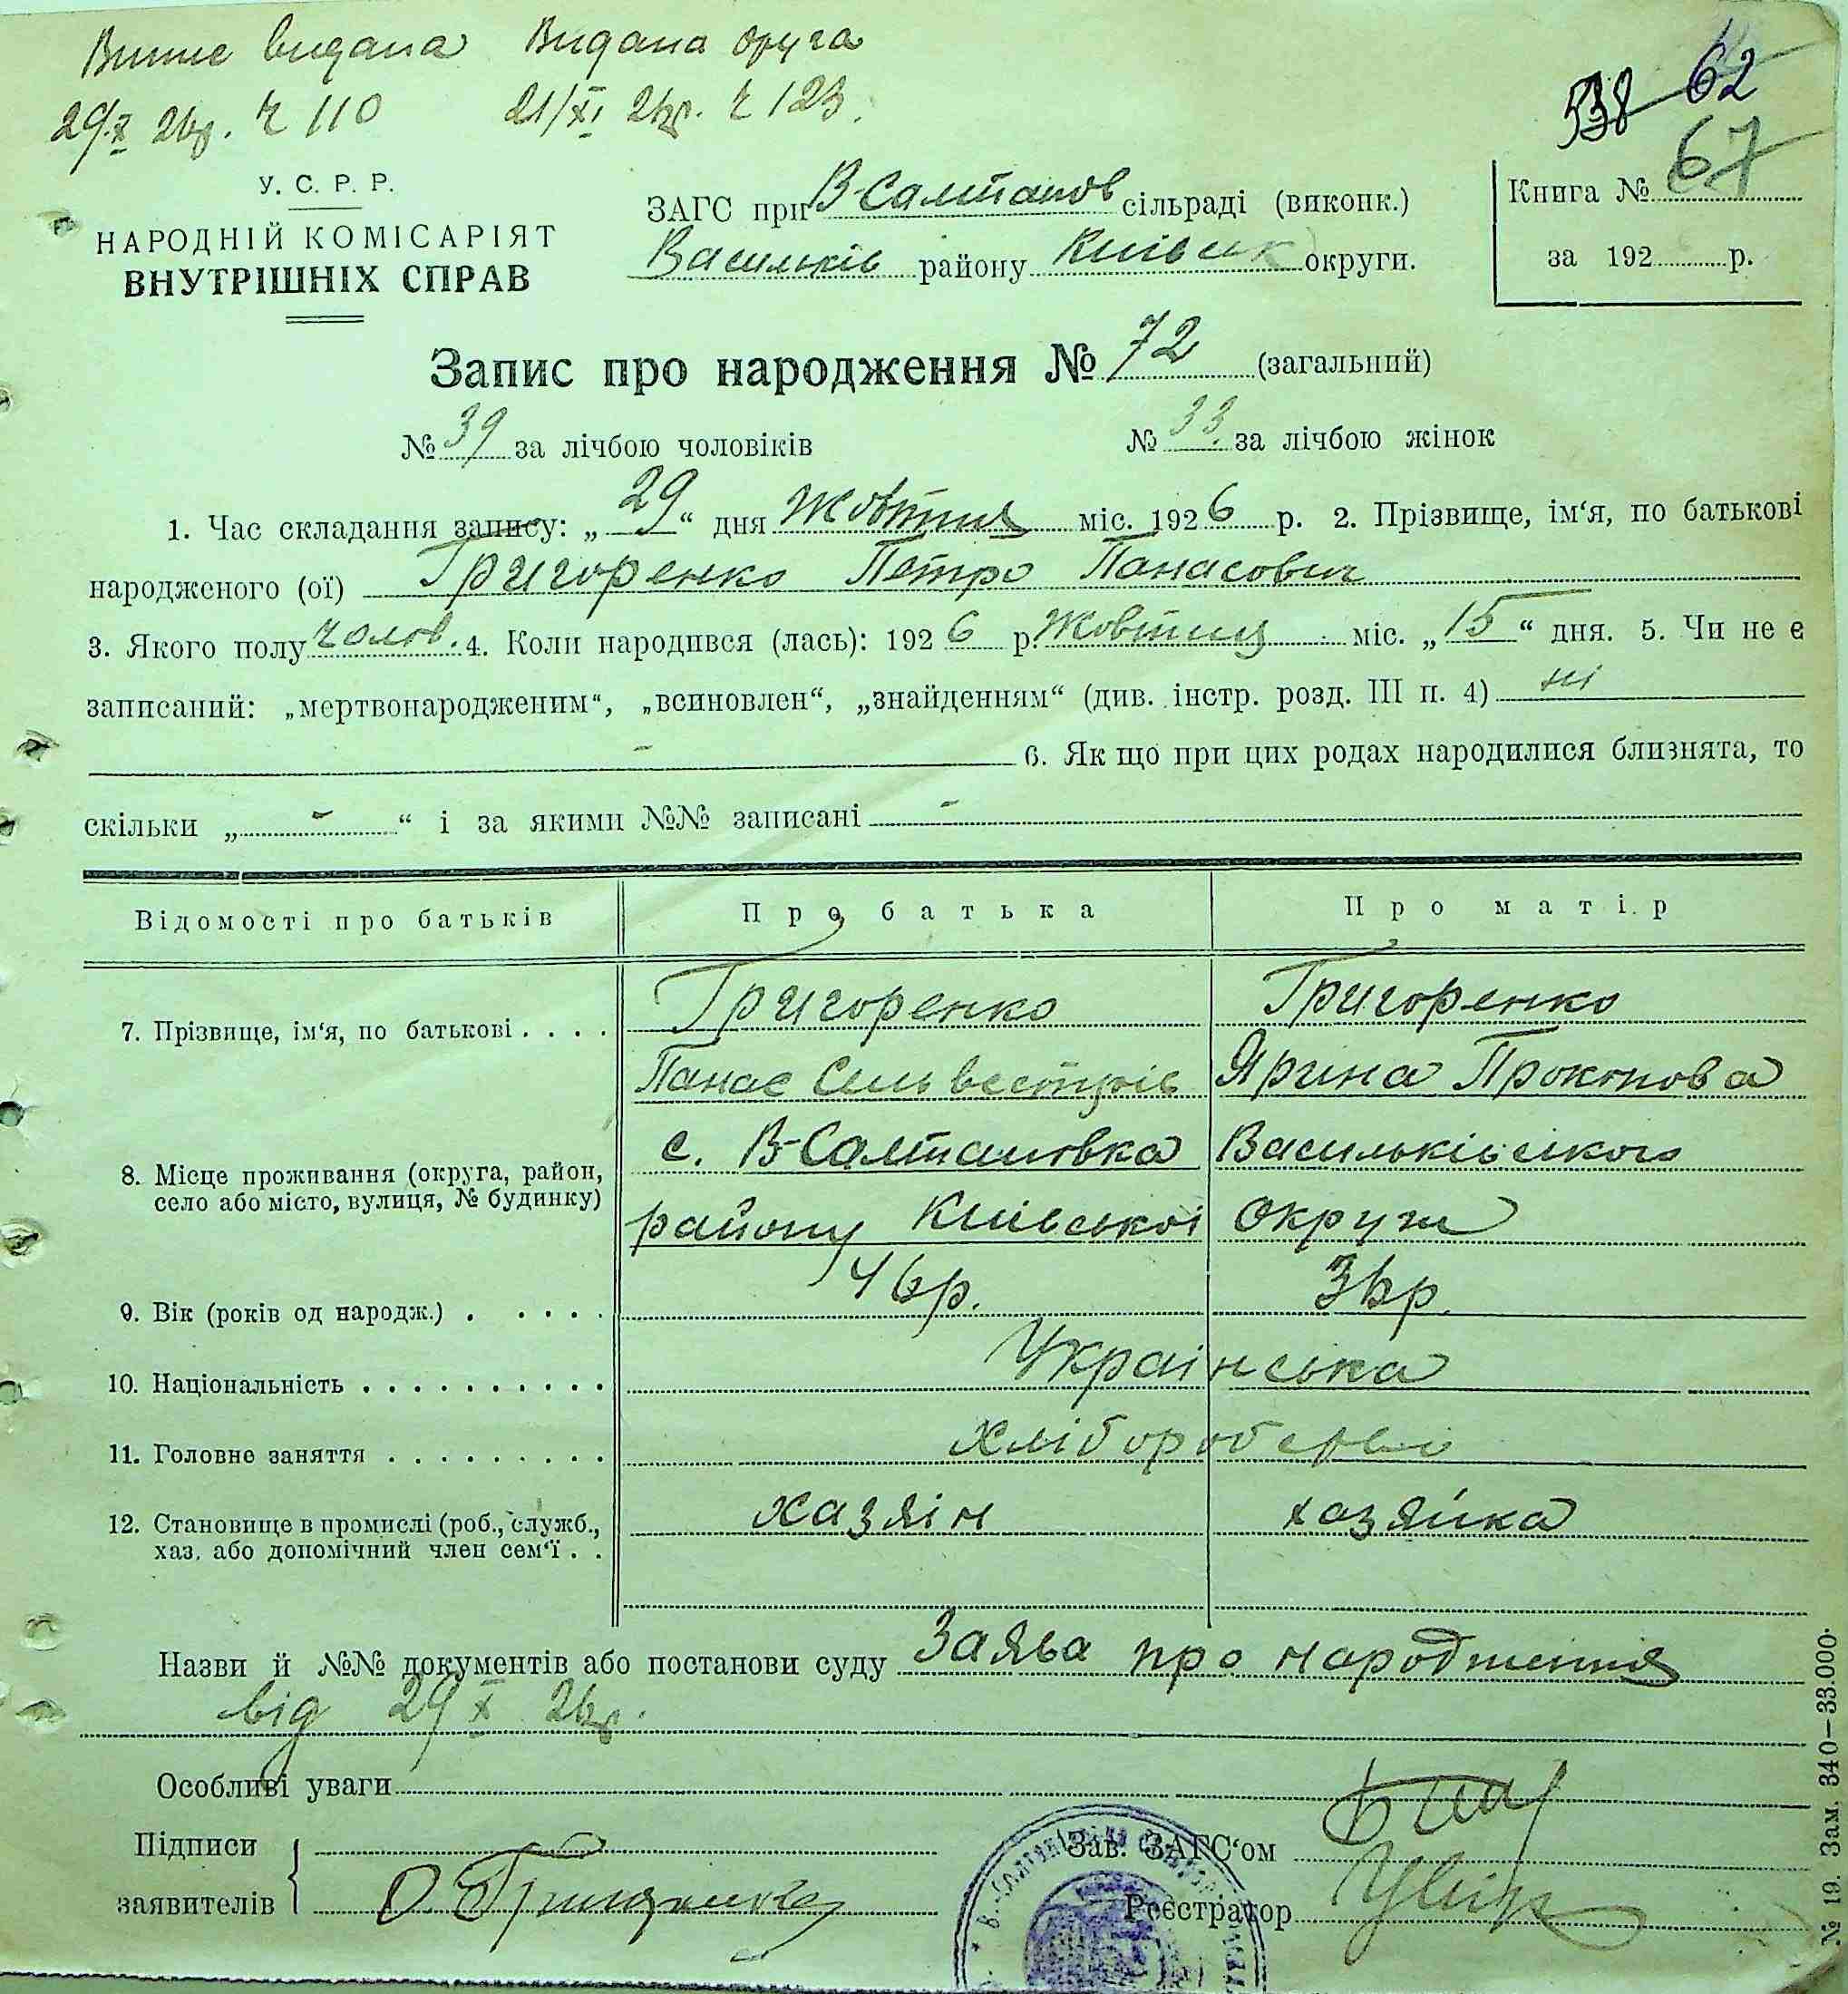 Випис видана Видана друга
29/X 26р. № 110 21/XI 26р. № 123.
538 62
67
У. С. Р. Р.
НАРОДНІЙ КОМІСАРІЯТ
ВНУТРІШНІХ СПРАВ
ЗАГС при В-Салтанов сільраді (виконк.)
Васильків району Київськ округи.
Книга №
за 192 р.
Запис про народження № 72 (загальний)
№ 39 за лічбою чоловіків № 33. за лічбою жінок
1. Час складання запису: „29“ дня Жовтня міс. 1926 р. 2. Прізвище, ім‘я, по батькові
народженого (ої) Григоренко Петро Панасович
3. Якого полу чолов. 4. Коли народився (лась): 1926 р. Жовтня міс. „15“ дня. 5. Чи не є
записаний: „мертвонародженим“, „всиновлен“, „знайденням“ (див. інстр. розд. III п. 4) ні
- 6. Як що при цих родах народилися близнята, то
скільки „ - “ і за якими №№ записані -
Відомості про батьків Про батька Про матір
7. Прізвище, ім‘я, по батькові . . . . Григоренко Григоренко
Панас Сильвестрів Ярина Прокопова
8. Місце проживання (округа, район,
село або місто, вулиця, № будинку)
с. В-Салтановка Васильківського
району Київської Округи
9. Вік (років од народж.) . . . . . 46р. 36р.
10. Національність . . . . . . . . . . Українська
11. Головне заняття . . . . . . . . . хлібороберви
12. Становище в промислі (роб., служб.,
хаз. або допомічний член сем‘ї . .
хазяїн хазяйка
Назви й №№ документів або постанови суду Заява про народження
від 29 X 26р.
Особливі уваги
Підписи
заявителів
Зав. ЗАГС‘ом
Реєстратор
№ 19. Зам. 340—33.000.